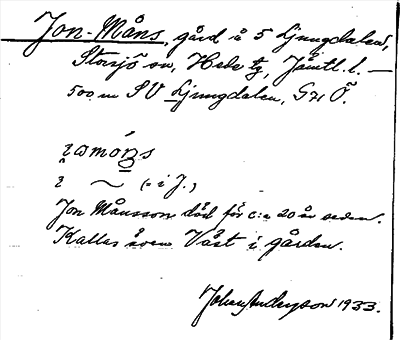 Jon-Måns, gård å 5 Ljungdalen,
Storsjö sn, Hede tg, Jämtl. l. —
500 m SV Ljungdalen, G 71 Ö.
i ~ (= i J.)
Jon Månsson död för c:a 20 år sedan.
Kallas även Väst i gården.
Johan Anderson 1933.